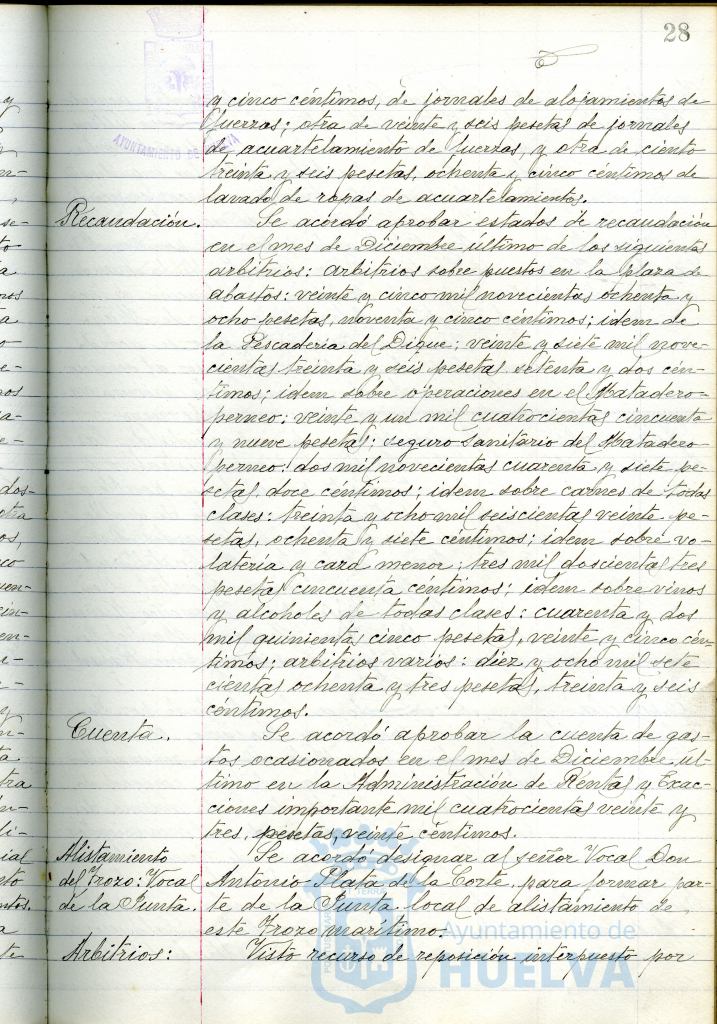 28
AYUNTAMIENTO DE HUELVA
y cinco céntimos, de jornales de alojamientos de
fuerzas; otra de veinte y seis pesetas de jornales
de acuartelamiento de fuerzas, y otra de ciento
treinta y seis pesetas, ochenta y cinco céntimos de
lavado de ropas de acuartelamientos.
Recaudación. Se acordó aprobar estados de recaudación
en el mes de Diciembre último de los siguientes
arbitrios: arbitrios sobre puestos en la plaza de
abastos: veinte y cinco mil novecientas ochenta y
ocho pesetas, noventa y cinco céntimos; idem de
la Pescadería del Dique: veinte y siete mil nove-
cientas treinta y seis pesetas setenta y dos cén-
timos; idem sobre operaciones en el Matadero-
perneo: veinte y un mil cuatrocientas cincuenta
y nueve pesetas; seguro sanitario del Matadero
perneo: dos mil novecientas cuarenta y siete pe-
setas, doce céntimos; idem sobre carnes de todas
clases: treinta y ocho mil seiscientas veinte pe-
setas, ochenta y siete céntimos; idem sobre vo-
latería y caza menor; tres mil doscientas tres
pesetas cincuenta céntimos; idem sobre vinos
y alcoholes de todas clases: cuarenta y dos
mil quinientas cinco pesetas, veinte y cinco cén-
timos; arbitrios varios: diez y ocho mil sete
cientas ochenta y tres pesetas, treinta y seis
céntimos.
Cuenta. Se acordó aprobar la cuenta de gas-
tos ocasionados en el mes de Diciembre úl-
timo en la Administración de Rentas y Exac-
ciones importante mil cuatrocientas veinte y
tres, pesetas, veinte céntimos.
Alistamiento Se acordó designar al señor Vocal Don
del Trozo: Vocal Antonio Plata de la Corte, para formar par-
de la Junta. te de la Junta local de alistamiento de
este Trozo marítimo.
Arbitrios: Visto recurso de reposición interpuesto por
Ayuntamiento de
HUELVA